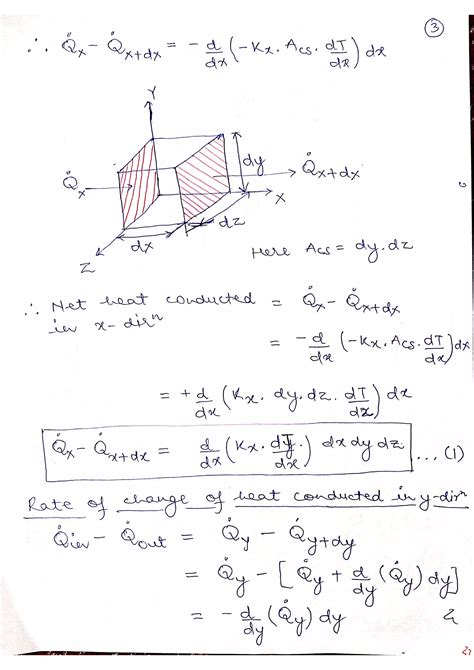 ③
∴ Q̇x - Q̇x+dx = - d/dx (-Kx. Acs. dT/dx) dx
Y
dy
Q̇x
Q̇x+dx
X
dz
dx
Z
Here Acs = dy.dz
∴ Net heat conducted = Q̇x - Q̇x+dx
in x-dirⁿ
= - d/dx (-Kx. Acs. dT/dx) dx
= + d/dx (Kx. dy.dz. dT/dz) dx
Q̇x - Q̇x+dx = d/dx (Kx. dT/dx) dx dy dz ...(1)
Rate of change of heat conducted in y-dirⁿ
Q̇in - Q̇out = Q̇y - Q̇y+dy
= Q̇y - [Q̇y + d/dy (Q̇y) dy]
= - d/dy (Q̇y) dy